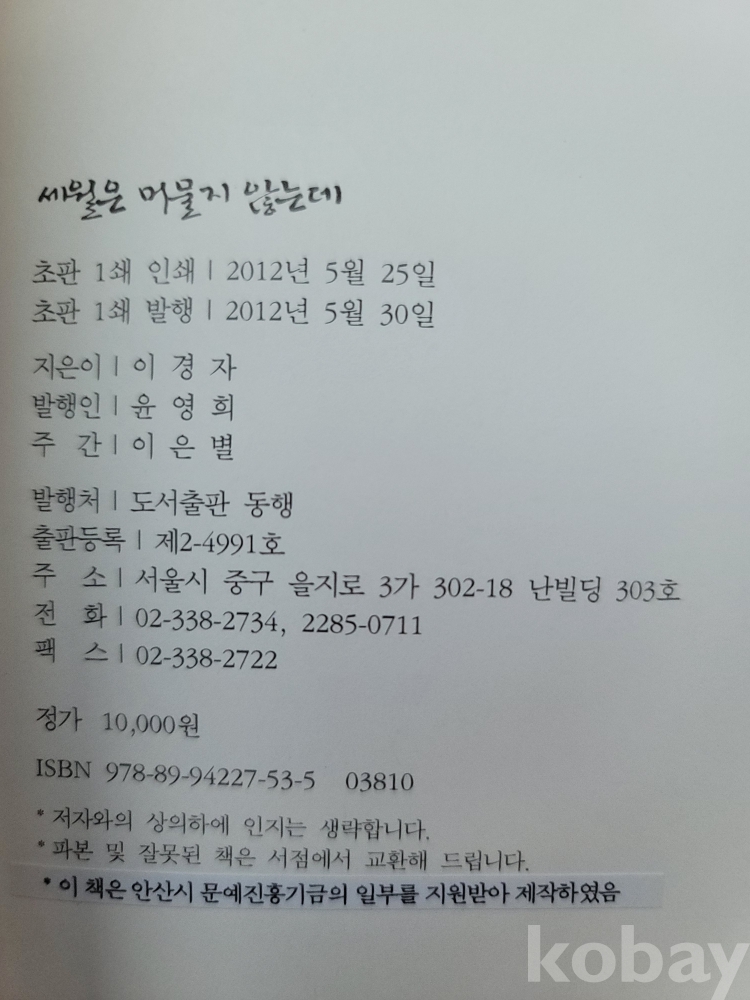 세월은 머물지 않는데
초판 1쇄 인쇄 | 2012년 5월 25일
초판 1쇄 발행 | 2012년 5월 30일
지은이 | 이 경 자
발행인 | 윤 영 희
주 간 | 이 은 별
발행처 | 도서출판 동행
출판등록 | 제2-4991호
주 소 | 서울시 중구 을지로 3가 302-18 난빌딩 303호
전 화 | 02-338-2734, 2285-0711
팩 스 | 02-338-2722
정가 10,000원
ISBN 978-89-94227-53-5 03810
* 저자와의 상의하에 인지는 생략합니다.
* 파본 및 잘못된 책은 서점에서 교환해 드립니다.
* 이 책은 안산시 문예진흥기금의 일부를 지원받아 제작하였음
kobay